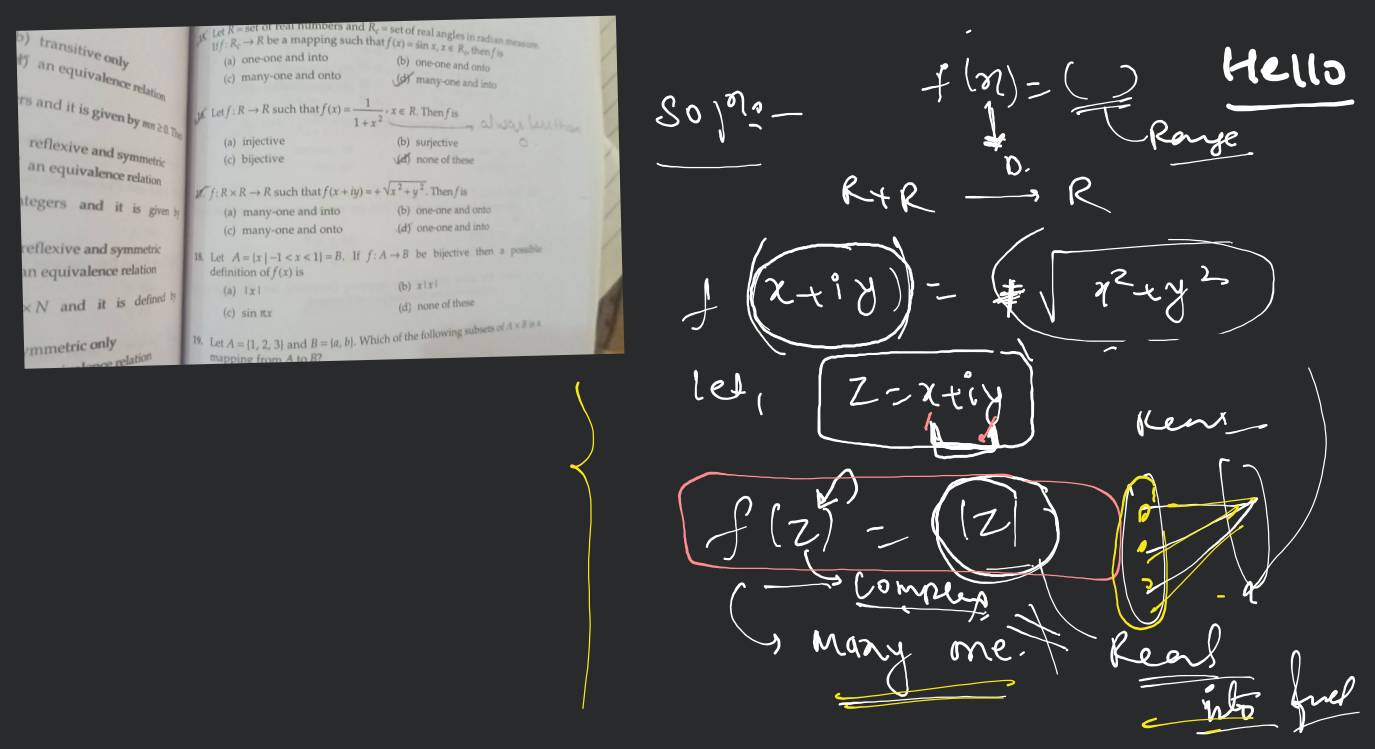 b) transitive only
d) an equivalence relation
rs and it is given by
reflexive and symmetric
an equivalence relation
tegers and it is given by
reflexive and symmetric
an equivalence relation
× N and it is defined by
ymmetric only
relation
Let R = set of real numbers and Rc = set of real angles in radian measure.
If f : Rc → R be a mapping such that f(x) = sin x, x ∈ Rc, then f is
(a) one-one and into (b) one-one and onto
(c) many-one and onto (d) many-one and into
Let f : R → R such that f(x) = 1/(1+x²), x ∈ R. Then f is
(a) injective (b) surjective
(c) bijective (d) none of these
f : R × R → R such that f(x + iy) = + √(x² + y²). Then f is
(a) many-one and into (b) one-one and onto
(c) many-one and onto (d) one-one and into
18. Let A = {x | -1 < x < 1} = B. If f : A → B be bijective then a possible
definition of f(x) is
(a) |x| (b) x|x|
(c) sin πx (d) none of these
19. Let A = {1, 2, 3} and B = {a, b}. Which of the following subsets of A × B is a
mapping from A to B?
Hello
f(x) = ( )
Range
Soln:-
D.
R+R → R
f(x+iy) = √x²+y²
Let, Z = x+iy
f(z) = |z|
Complex
Many one.
Real
into func